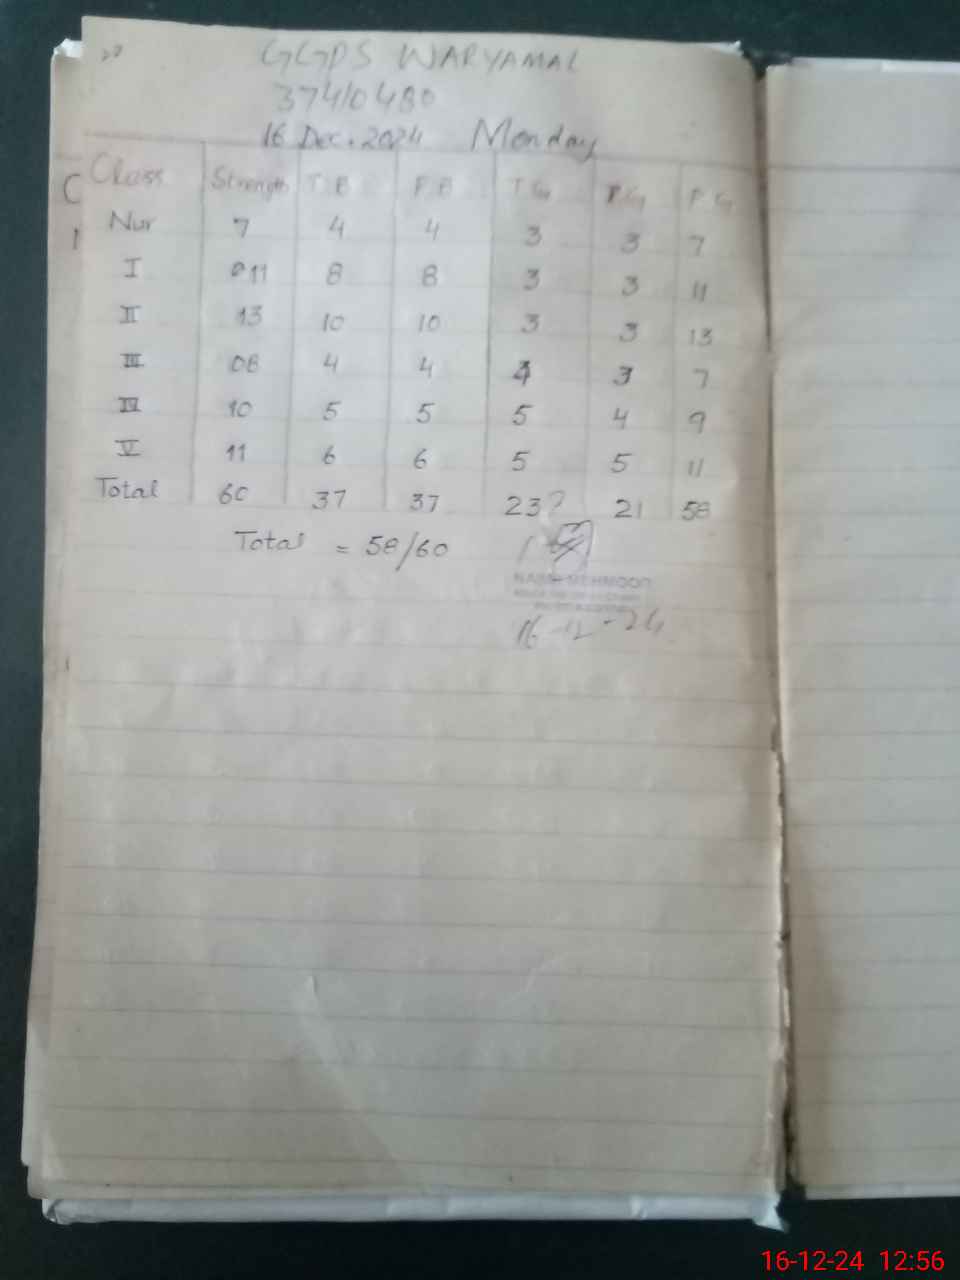 GGPS WARYAMAL
37410480
16 Dec. 2024 Monday
Class Strength T.B P.B T.G P.G P.G
Nur 7 4 4 3 3 7
I 011 8 8 3 3 11
II 13 10 10 3 3 13
III 08 4 4 4 3 7
IV 10 5 5 5 4 9
V 11 6 6 5 5 11
Total 60 37 37 23? 21 58
Total = 58/60
MEHMOOD
16-12-24
16-12-24 12:56